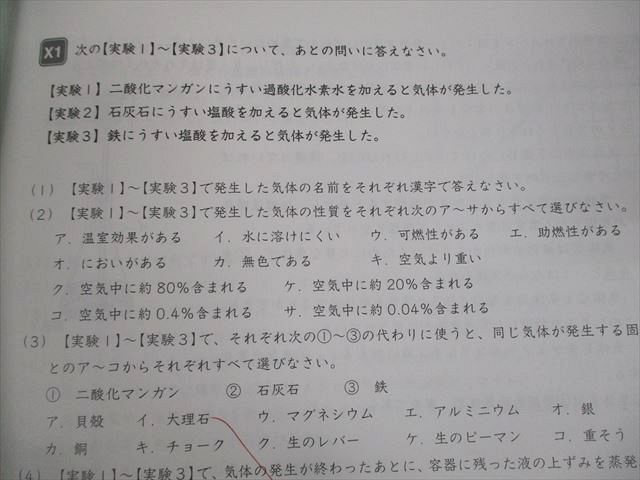 X1 次の【実験1】~【実験3】について、あとの問いに答えなさい。
【実験1】 二酸化マンガンにうすい過酸化水素水を加えると気体が発生した。
【実験2】 石灰石にうすい塩酸を加えると気体が発生した。
【実験3】 鉄にうすい塩酸を加えると気体が発生した。
(1) 【実験1】~【実験3】で発生した気体の名前をそれぞれ漢字で答えなさい。
(2) 【実験1】~【実験3】で発生した気体の性質をそれぞれ次のア~サからすべて選びなさい。
ア. 温室効果がある イ. 水に溶けにくい ウ. 可燃性がある エ. 助燃性がある
オ. においがある カ. 無色である キ. 空気より重い
ク. 空気中に約80%含まれる ケ. 空気中に約20%含まれる
コ. 空気中に約0.4%含まれる サ. 空気中に約0.04%含まれる
(3) 【実験1】~【実験3】で、それぞれ次の①~③の代わりに使うと、同じ気体が発生する固
とのア~コからそれぞれすべて選びなさい。
① 二酸化マンガン ② 石灰石 ③ 鉄
ア. 貝殻 イ. 大理石 ウ. マグネシウム エ. アルミニウム オ. 銀
カ. 銅 キ. チョーク ク. 生のレバー ケ. 生のピーマン コ. 重そう
(4) 【実験1】~【実験3】で、気体の発生が終わったあとに、容器に残った液の上ずみを蒸発